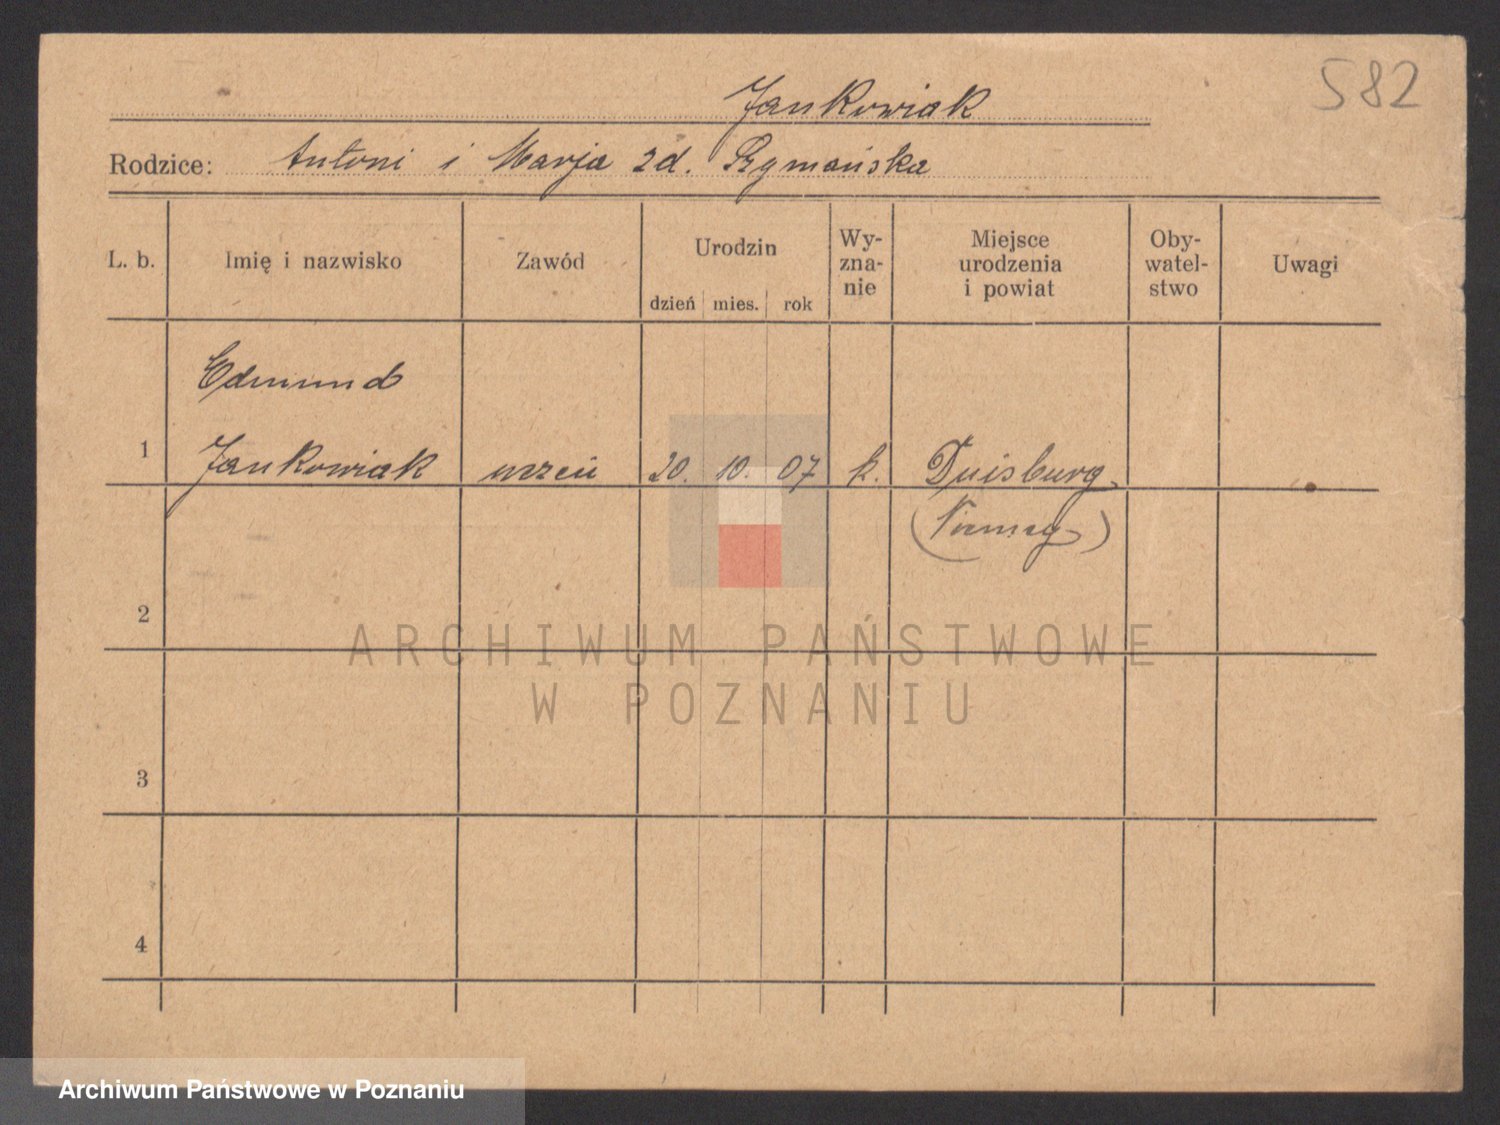 582
Jankowiak
Rodzice: Antoni i Marja zd. Szymańska
L. b. Imię i nazwisko Zawód Urodzin dzień mies. rok Wy-zna-nie Miejsce urodzenia i powiat Oby-watel-stwo Uwagi
Edmund
1 Jankowiak uczeń 20. 10. 07 k. Duisburg
(Niemcy)
2
ARCHIWUM PAŃSTWOWE
W POZNANIU
3
4
Archiwum Państwowe w Poznaniu